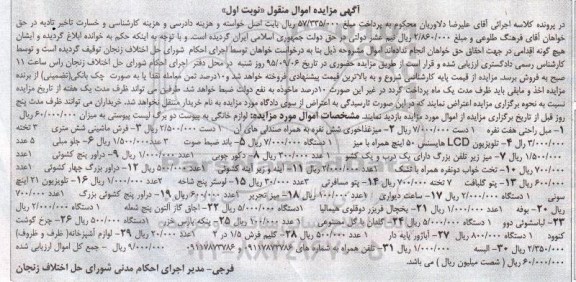 آگهی مزایده اموال منقول «نوبت اول»
در پرونده کلاسه اجرائی آقای علیرضا دلاوریان محکوم به پرداخت مبلغ ۵۷/۳۳۵/۰۰۰ ریال بابت اصل خواسته و هزینه دادرسی و هزینه کارشناسی و خسارت تاخیر تادیه در حق
خواهان آقای فرهنگ طلوعی و مبلغ ۲/۸۶۰/۰۰۰ ریال نیم عشر دولتی در حق دولت جمهوری اسلامی ایران گردیده است. و با توجه به اینکه حکم به خوانده ابلاغ گردیده و ایشان
هیچ گونه اقدامی در جهت احقاق حق خواهان انجام نداده‌اند اموال مشروحه ذیل بنا به درخواست خواهان توسط اجرای احکام شورای حل اختلاف زنجان توقیف گردیده است و توسط
کارشناس رسمی دادگستری ارزیابی شده و قرار است از طریق مزایده حضوری در تاریخ ۹۵/۰۹/۰۶ روز شنبه در محل دفتر اجرای احکام شورای حل اختلاف زنجان راس ساعت ۱۱
صبح به فروش برسد. مزایده از قیمت پایه کارشناس شروع و به بالاترین قیمت پیشنهادی فروخته خواهد شد و ۱۰درصد ثمن معامله نقدا یا به صورت چک بانکی(تضمینی) از برنده
مزایده اخذ و مابقی باید ظرف مدت یک ماه پرداخت گردد در غیر این صورت ۱۰درصد ماخوذه به نفع دولت ضبط خواهد شد. طرفین می تواند ظرف مدت یک هفته از تاریخ مزایده
نسبت به نحوه برگزاری مزایده اعتراض نمایند که در این صورت تا رسیدگی به اعتراض از سوی دادگاه مورد مزایده به نام خریدار منتقل نخواهد شد. خریداران می توانند ظرف مدت پنج
روز قبل از تاریخ برگزاری مزایده از اموال مورد مزایده بازدید نمایند. مشخصات اموال مورد مزایده: لوازم خانگی به پیوست دو برگ لیست پیوستی به میزان ۶۰/۰۰۰/۰۰۰ ریال
۱- مبل راحتی هفت نفره ۱ دست ۷/۰۰۰/۰۰۰ ریال ۲- میز غذاخوری شش نفره به همراه صندلی های آن ۱ دست ۲/۵۰۰/۰۰۰ ریال ۳- فرش ماشینی شش متری ۳ تخته
۳/۰۰۰/۰۰۰ ریال ۴- تلویزیون LCD هایسنس ۵۰ اینچ به همراه با میز ۱ دستگاه ۷/۰۰۰/۰۰۰ ریال ۵- باند ضبط صوت ۳ عدد ۱/۵۰۰/۰۰۰ ریال ۶- جلو مبلی ۵ عدد
۱/۵۰۰/۰۰۰ ریال ۷- میز زیر تلفن بزرگ دارای یک درب و یک کشو ۱ عدد ۳۰۰/۰۰۰ ریال ۸- دکور چوبی ۱عدد ۱/۰۰۰/۰۰۰ ریال ۹- دراور پنج کشوئی ۱عدد
۷۰۰/۰۰۰ ریال ۱۰- تخت خواب دونفره همراه با تشک ۱عدد ۲/۰۰۰/۰۰۰ ریال ۱۱- آینه و زیر آینه کشوئی ۲عدد ۵۰۰/۰۰۰ ریال ۱۲- دراور بزرگ چهار کشوئی ۱عدد
۶۰۰/۰۰۰ ریال ۱۳- پتو گلبافت ۷ تخته ۷۰۰/۰۰۰ ریال ۱۴- پتو مسافرتی ۲عدد ۳۰/۰۰۰ ریال ۱۵- لوستر پنج شاخه ۲عدد ۱/۰۰۰/۰۰۰ ریال ۱۶- تلویزیون ۲۱ اینچ
سونی ۱ دستگاه ۲/۰۰۰/۰۰۰ ریال ۱۷- ساعت دیواری ۱عدد ۱۰۰/۰۰۰ ریال ۱۸- میز تحریر ۱عدد ۶۰۰/۰۰۰ ریال ۱۹- دراور پنج کشوئی بزرگ ۱عدد ۷۰۰/۰۰۰
ریال ۲۰- بوفه ۱ عدد ۱/۰۰۰/۰۰۰ ریال ۲۱- یخچال فریزر دوقلوی هیمالیا ۱دستگاه ۵/۰۰۰/۰۰۰ ریال ۲۲- اجاق گاز آلتون پنج شعله ۱دستگاه ۲/۰۰۰/۰۰۰ ریال
۲۳- لباسشوئی دوو ۱ دستگاه ۵/۰۰۰/۰۰۰ ریال ۲۴- گلدان با گل مصنوعی ۱عدد ۱۰۰/۰۰۰ ریال ۲۵- پنکه پارس خزر ۱دستگاه ۵۰۰/۰۰۰ ریال ۲۶- چرخ گوشت
کنوود ۱ دستگاه ۸۰۰/۰۰۰ ریال ۲۷- آباژور پایه دار ۱ عدد ۵۰۰/۰۰۰ ریال ۲۸- گلیم فرش ۱/۵ در ۲ ۱عدد ۲۰۰/۰۰۰ ریال ۲۹- لوازم آشپزخانه (ظرف و ظروف)
۲/۳۵۰/۰۰۰ ریال ۳۰- البسه ۱/۰۰۰/۰۰۰ ریال ۳۱- تلفن به همراه به شماره های ۰۹۱۱۷۸۷۳۷۶۹ و ۰۹۱۱۷۸۷۳۷۸۶ ۹/۰۰۰/۰۰۰ ریال - جمع کل اموال ارزیابی شده
۶۰/۰۰۰/۰۰۰ ریال ( شصت میلیون ریال ) می باشد.
فرجی- مدیر اجرای احکام مدنی شورای حل اختلاف زنجان